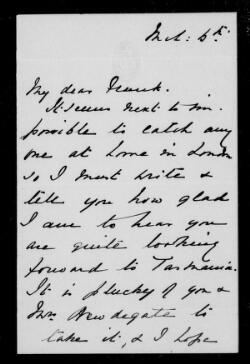 My dear
It seems next to im-
possible to catch any
one at home in London
so I must write &
tell you how glad
I am to hear you
are quite looking
forward to Tasmania.
It is plucky of you &
Mrs Newdegate to
take it, & I hope